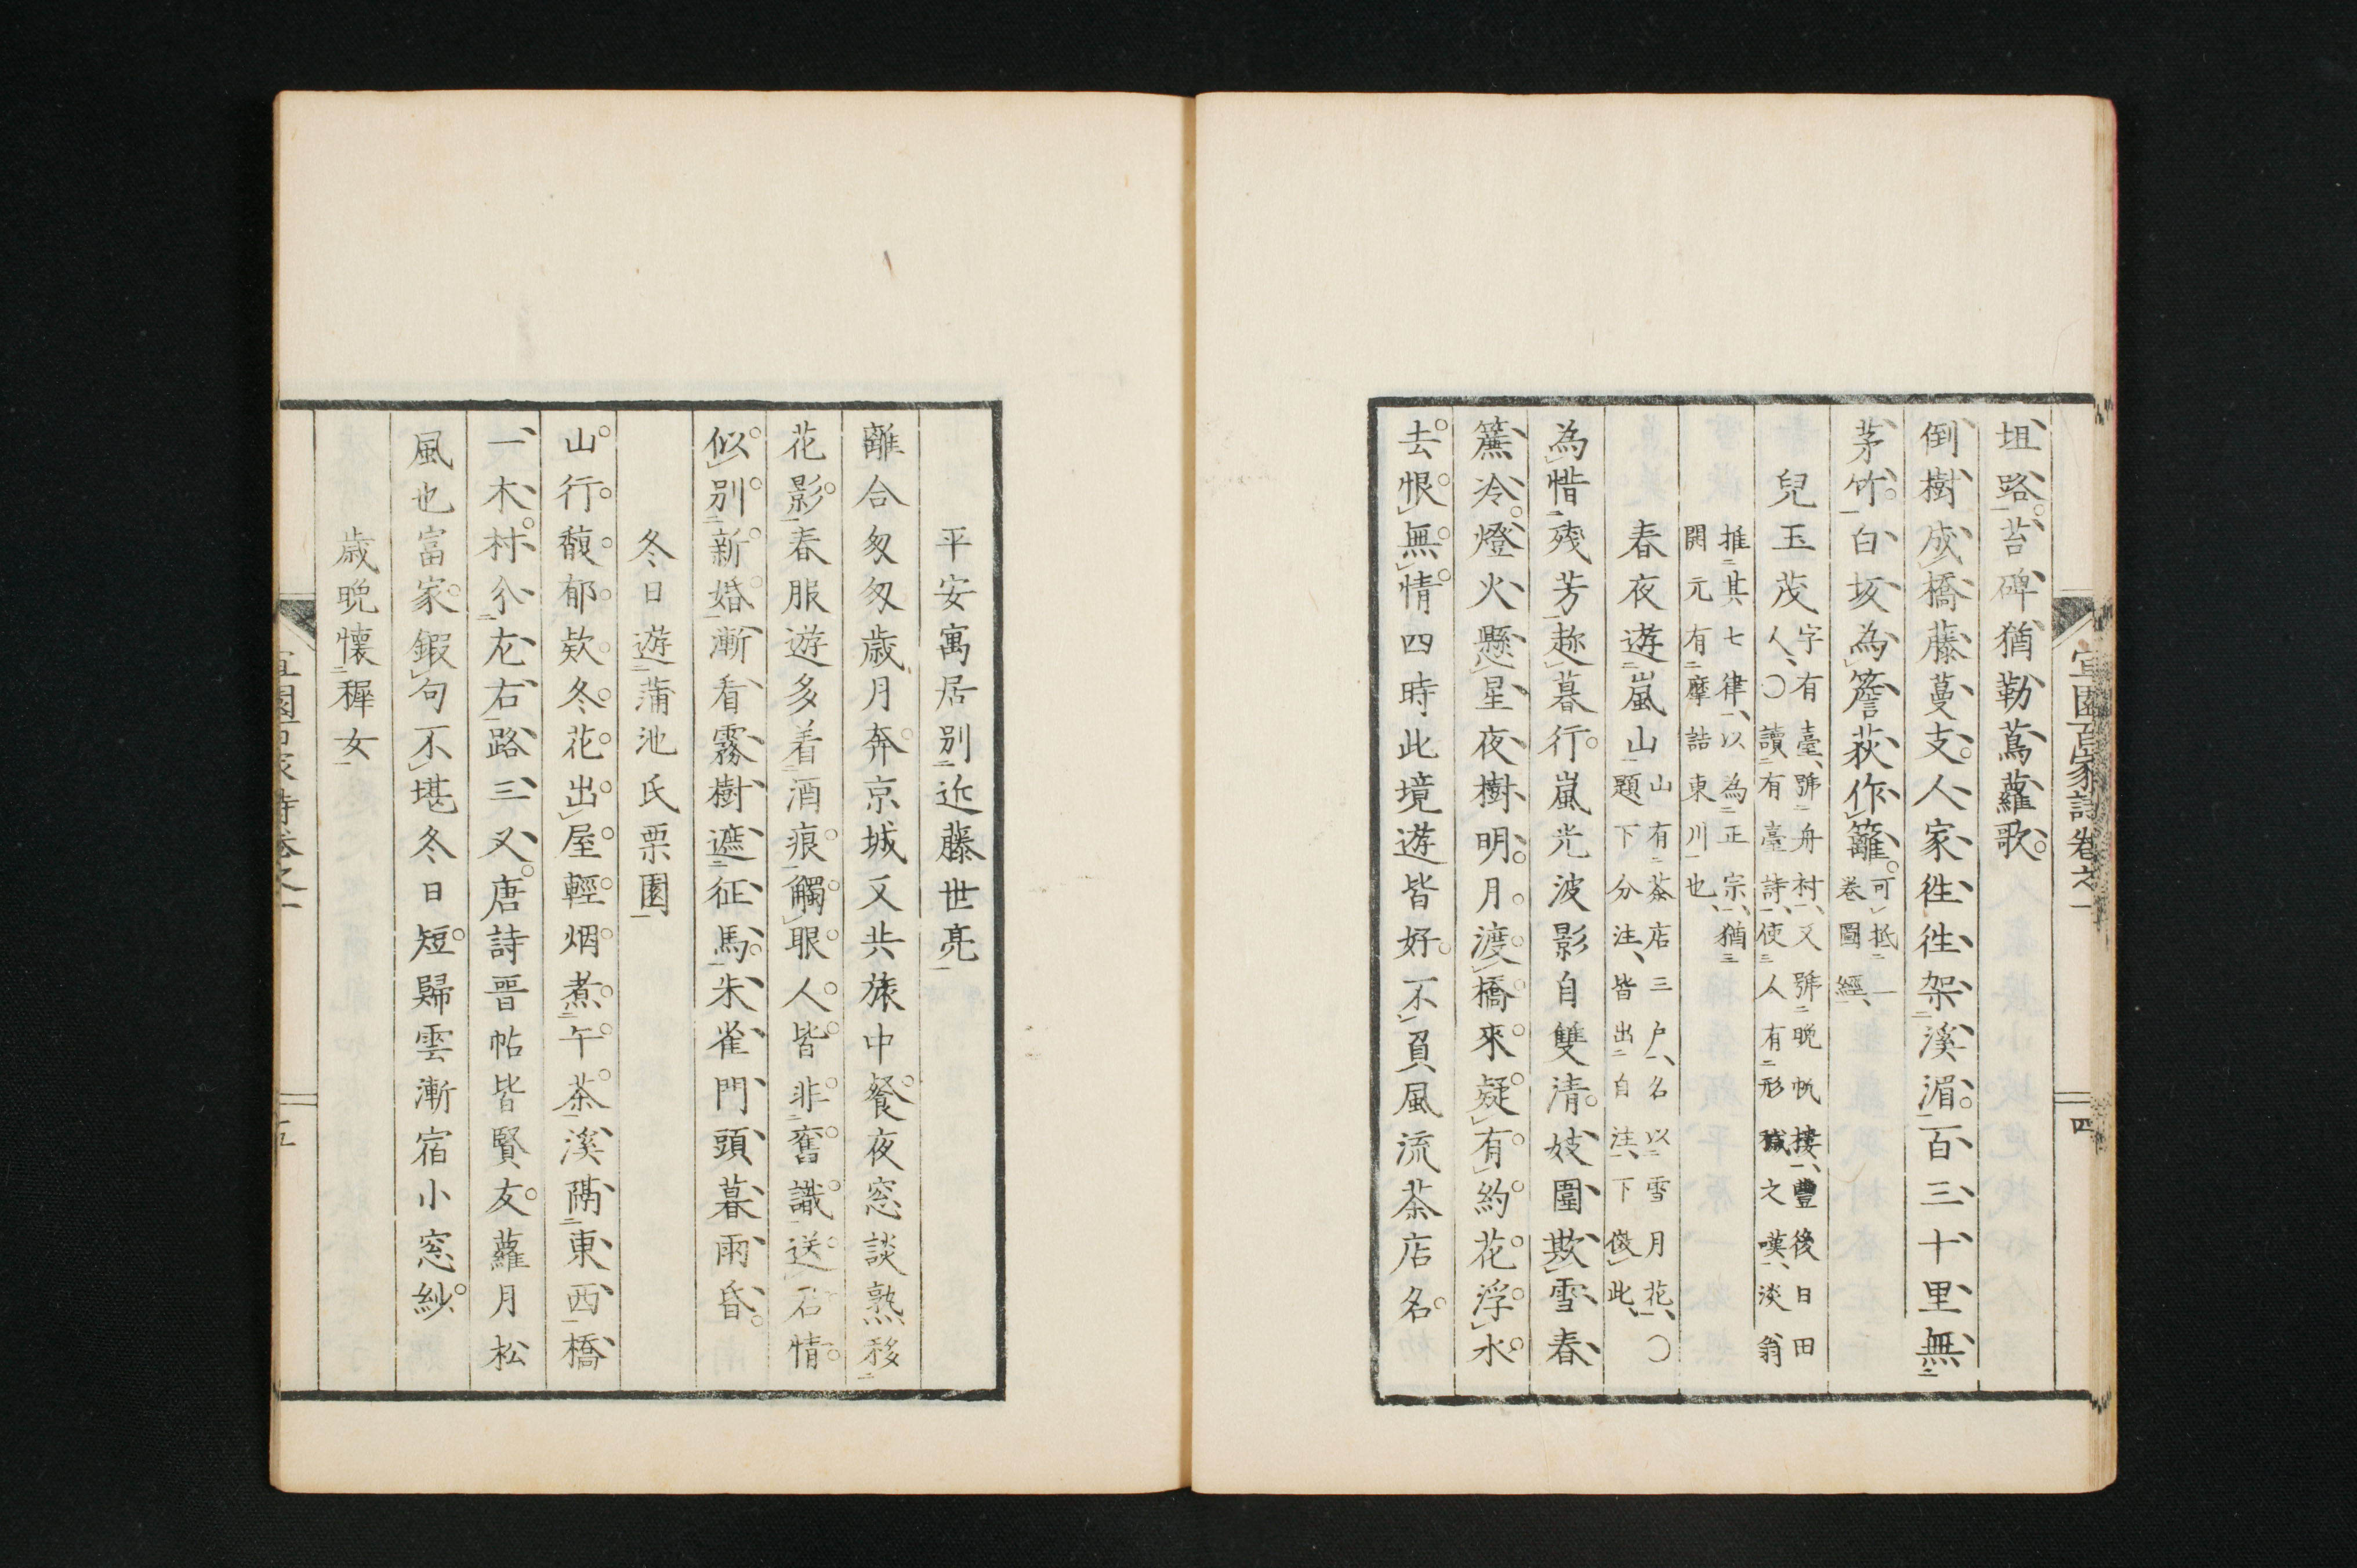 坦路苔碑猶勒蔦蘿歌
倒樹成橋藤蔓支人家徃徃架溪湄百三十里無
茅竹白坂為簷荻作籬可抵一
卷圖經
兒玉茂字有臺號舟村又號晚帆樓豐後日田
人〇讀有臺詩使人有形穢之嘆淡翁
推其七律以為正宗猶
開元有摩詰東川也
春夜遊嵐山山有茶店三户名以雪月花〇
題下分注皆出自注下倣此
為惜殘芳趂暮行嵐光波影自雙清妓圍欺雪春
簾冷燈火懸星夜樹明月渡橋來疑有約花浮水
去恨無情四時此境遊皆好不負風流茶店名
宜園百家詩卷之一
四
平安寓居別近藤世亮
離合匆匆歲月奔京城又共旅中餐夜窓談熟移
花影春服遊多着酒痕觸眼人皆非舊識送君情
似別新婚漸看霧樹遮征馬朱雀門頭暮雨昏
冬日遊蒲池氏栗園
山行馥郁欵冬花出屋輕烟煮午茶溪隔東西橋
一木村分左右路三叉唐詩晉帖皆賢友蘿月松
風也富家鍜句不堪冬日短歸雲漸宿小窓紗
歳晩懷穉女
宜園百家詩卷之一
五